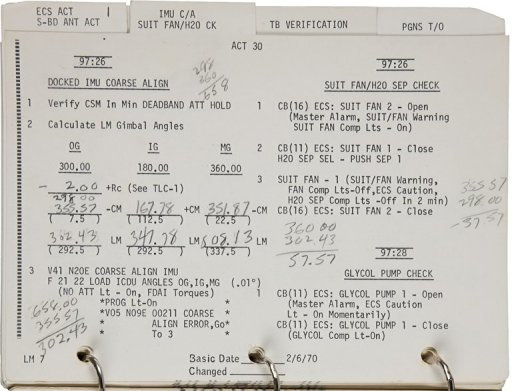 ECS ACT
S-BD ANT ACT
IMU C/A
SUIT FAN/H2O CK
TB VERIFICATION
PGNS T/O
ACT 30
97:26
DOCKED IMU COARSE ALIGN
298
360
658
1 Verify CSM In Min DEADBAND ATT HOLD
2 Calculate LM Gimbal Angles
OG IG MG
300.00 180.00 360.00
- 2.00 +Rc (See TLC-1)
298.00
355.57 -CM 167.78 +CM 351.87 -CM
(7.5) (112.5) (22.5)
302.43 LM 347.78 LM 008.13 LM
(292.5) (292.5) (337.5)
3 V41 N20E COARSE ALIGN IMU
F 21 22 LOAD ICDU ANGLES OG,IG,MG (.01°)
(NO ATT Lt - On, FDAI Torques)
*PROG Lt-On *
*V05 N09E 00211 COARSE *
* ALIGN ERROR,Go*
* To 3 *
658.00
355.57
302.43
97:26
SUIT FAN/H2O SEP CHECK
1 CB(16) ECS: SUIT FAN 2 - Open
(Master Alarm, SUIT/FAN Warning
SUIT FAN Comp Lts - On)
2 CB(11) ECS: SUIT FAN 1 - Close
H2O SEP SEL - PUSH SEP 1
3 SUIT FAN - 1 (SUIT/FAN Warning,
FAN Comp Lts-Off,ECS Caution,
H2O SEP Comp Lts -Off In 2 min)
CB(16) ECS: SUIT FAN 2 - Close
355.57
298.00
-57.57
360.00
302.43
57.57
97:28
GLYCOL PUMP CHECK
1 CB(11) ECS: GLYCOL PUMP 1 - Open
(Master Alarm, ECS Caution
Lt - On Momentarily)
CB(11) ECS: GLYCOL PUMP 1 - Close
(GLYCOL Comp Lt-On)
LM 7
Basic Date 2/6/70
Changed